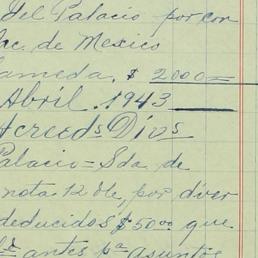 del Palacio por con
Fac. de Mexico
lameda, $ 2000=
Abril. 1943
Acreeds Divs
Palacio= Sda. de
nota 12 de, por diver
deducidos $ 50.00 que
antes pa asuntos